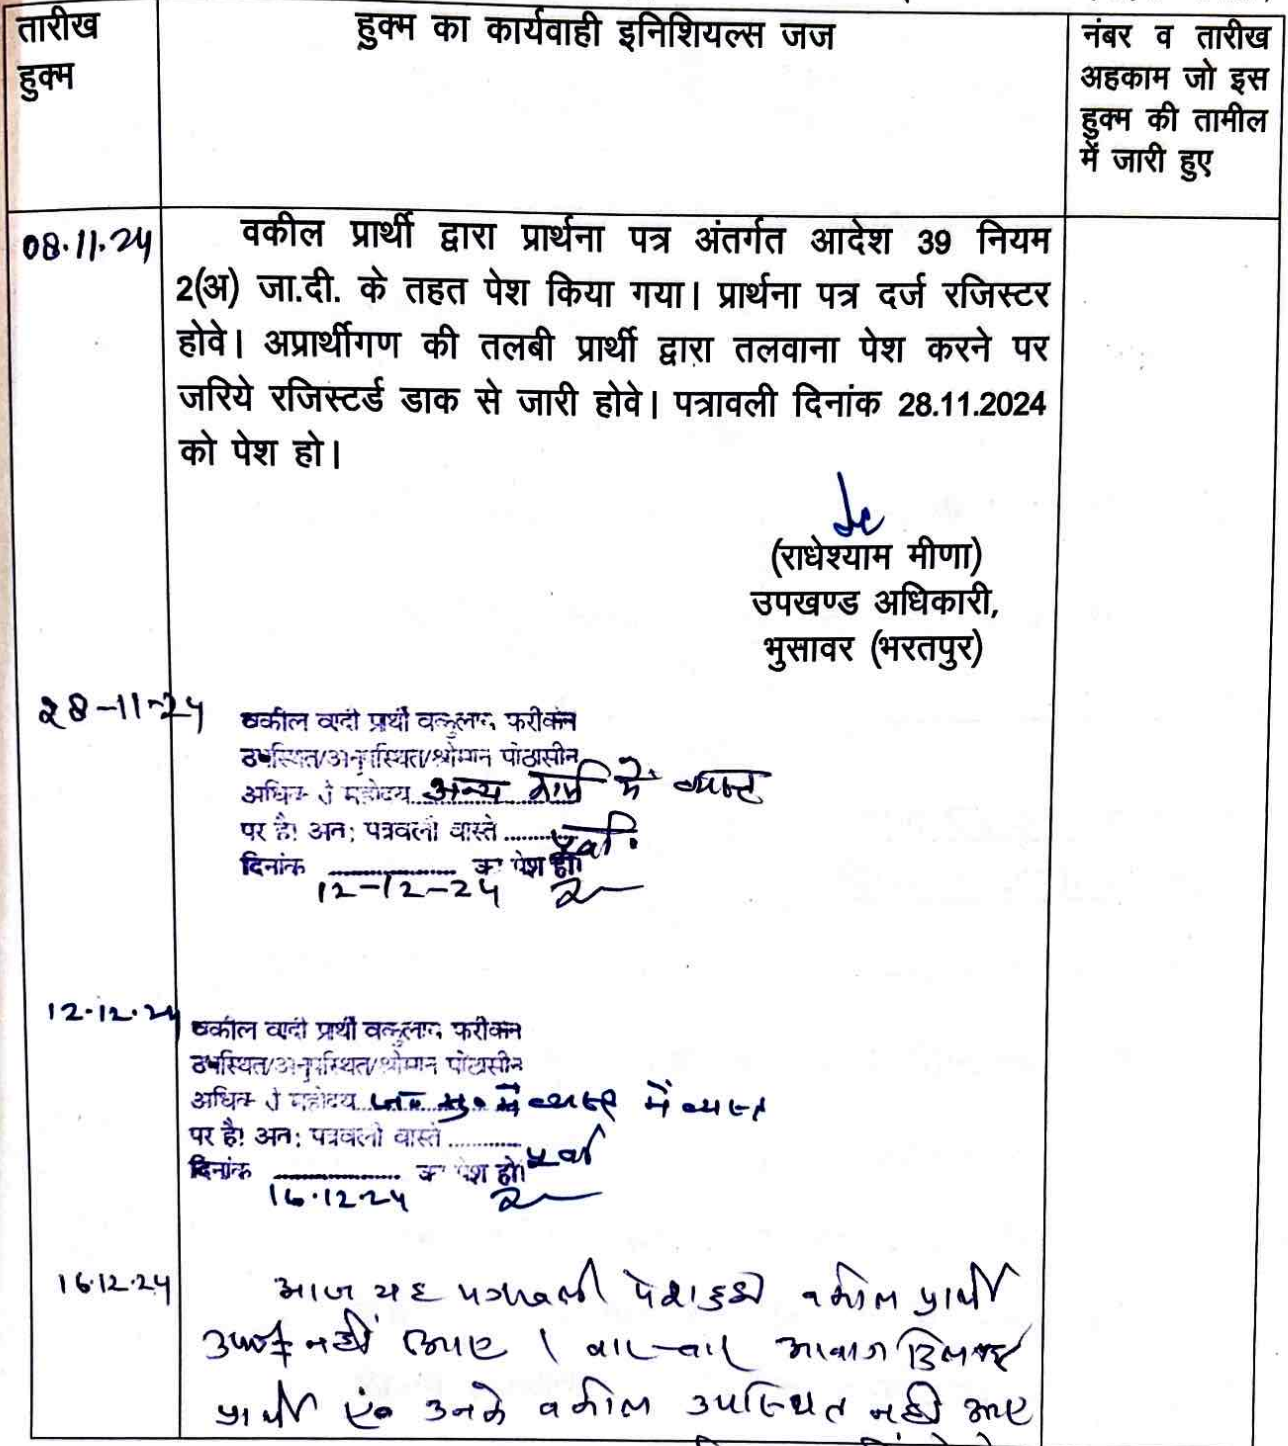 तारीख
हुक्म
हुक्म का कार्यवाही इनिशियल्स जज
नंबर व तारीख
अहकाम जो इस
हुक्म की तामील
में जारी हुए
08.11.24
वकील प्रार्थी द्वारा प्रार्थना पत्र अंतर्गत आदेश 39 नियम
2(अ) जा.दी. के तहत पेश किया गया। प्रार्थना पत्र दर्ज रजिस्टर
होवे। अप्रार्थीगण की तलबी प्रार्थी द्वारा तलवाना पेश करने पर
जरिये रजिस्टर्ड डाक से जारी होवे। पत्रावली दिनांक 28.11.2024
को पेश हो।
(राधेश्याम मीणा)
उपखण्ड अधिकारी,
भुसावर (भरतपुर)
28-11-24
वकील वादी प्रार्थी वकुलान फरीकन
उपस्थित/अनुपस्थित/श्रीमान पीठासीन
महोदय अन्य कार्य में व्यस्त
पर है। अत: पत्रवली वास्ते पूर्व
दिनांक 12-12-24 को पेश हो।
12.12.24
वकील वादी प्रार्थी वकुलान फरीकन
उपस्थित/अनुपस्थित/श्रीमान पीठासीन
महोदय में व्यस्त
पर है। अत: पत्रवली वास्ते पूर्व
दिनांक 16.12.24 को पेश हो।
16.12.24
आज यह पत्रावली पेश हुई वकील प्रार्थी
नहीं आए। बार-बार आवाज
प्रार्थी एंव उनके वकील उपस्थित नहीं आए